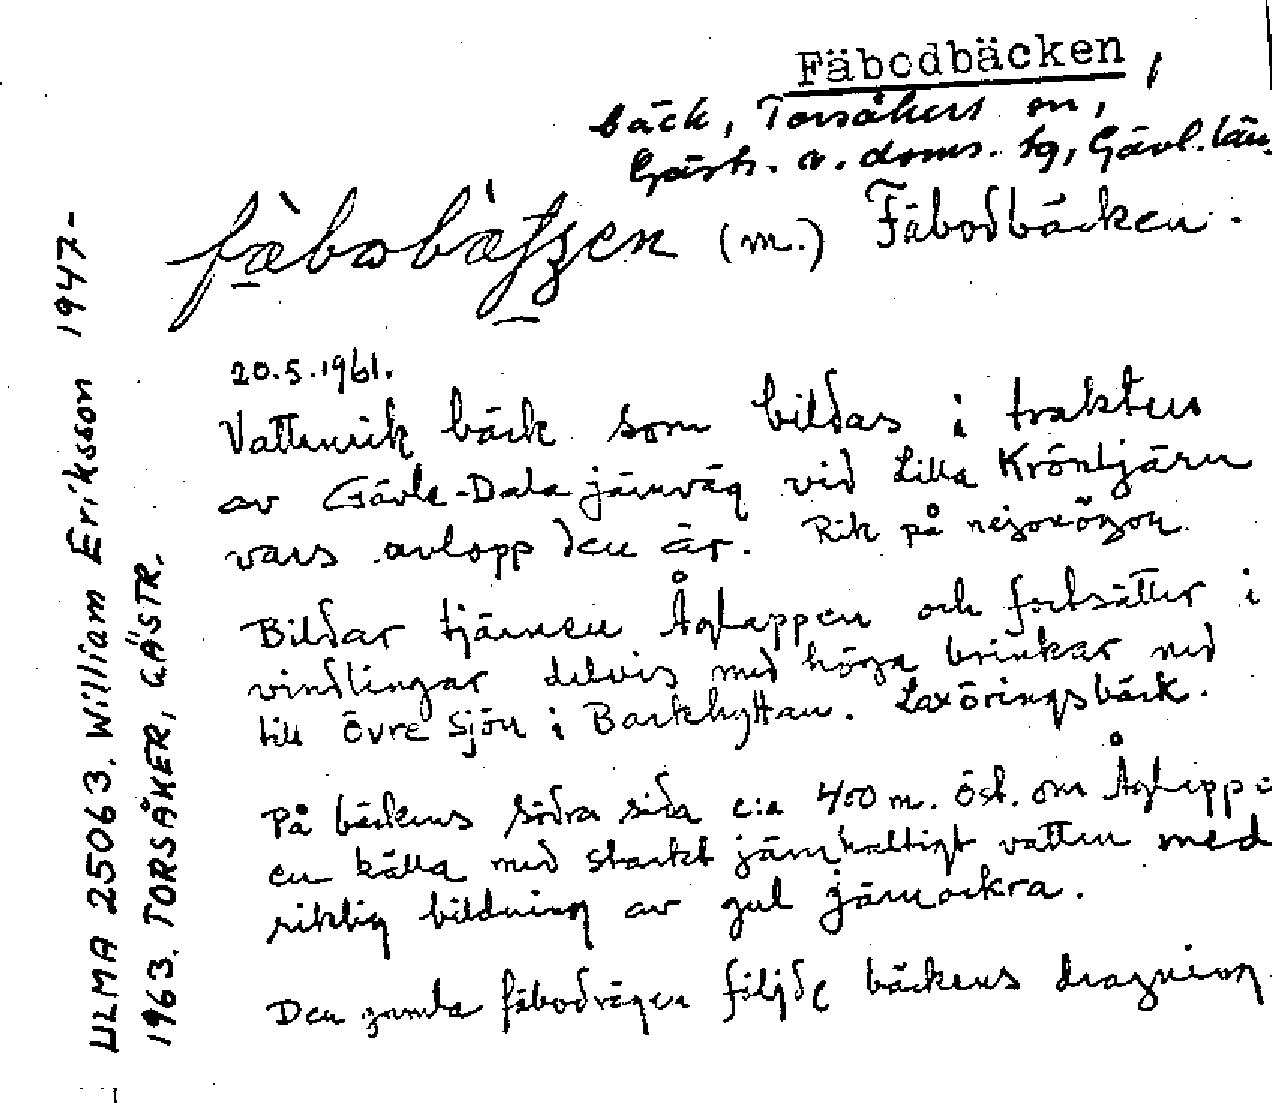 Fäbodbäcken,
bäck, Torsåkers sn,
Gästr. v. doms. tg, Gävl. län.
(m.) Fäbodbäcken.
20.5.1961.
Vattenrik bäck som bildas i trakten
av Gävle-Dala järnväg vid Lilla Kröntjärn
vars avlopp den är. Rik på nejonögon.
Bildar tjärnen Ågtappen och fortsätter i
vindlingar delvis med höga brinkar ned
till Övre Sjön i Barkhyttan. Laxöringsbäck.
På bäckens södra sida c:a 400 m. öst. om
en källa med starkt järnhaltigt vatten med
riklig bildning av gul järnockra.
Den gamla fäbodvägen följde bäckens dragning
ULMA 25063. William Eriksson 1947-
1963. TORSÅKER, GÄSTR.